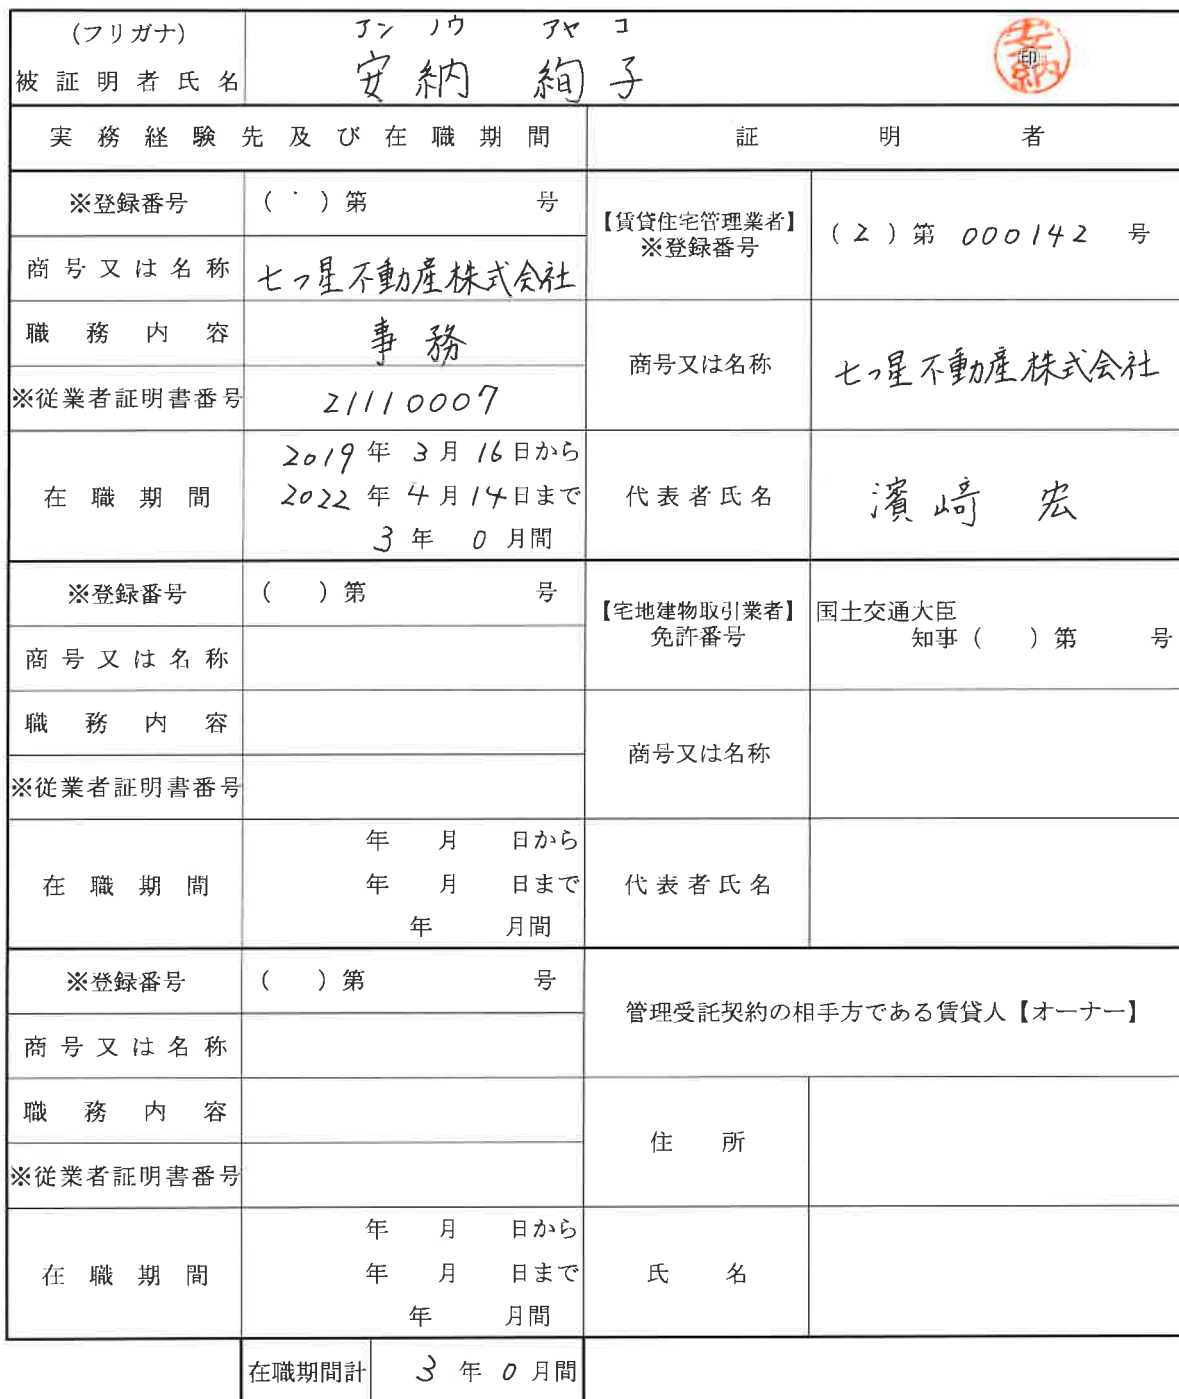 (フリガナ) アンノウ アヤコ
被証明者氏名 安納 絢子 印 安納
実務経験先及び在職期間 証明者
※登録番号 ( ) 第 号 【賃貸住宅管理業者】 ※登録番号 ( 2 ) 第 000142 号
商号又は名称 七つ星不動産株式会社
職務内容 事務 商号又は名称 七つ星不動産株式会社
※従業者証明書番号 21110007
在職期間 2019年 3月 16日から 代表者氏名 濱﨑 宏
2022年 4月 14日まで
3年 0月間
※登録番号 ( ) 第 号 【宅地建物取引業者】 免許番号 国土交通大臣
知事 ( ) 第 号
商号又は名称
職務内容 商号又は名称
※従業者証明書番号
在職期間 年 月 日から 代表者氏名
年 月 日まで
年 月間
※登録番号 ( ) 第 号 管理受託契約の相手方である賃貸人【オーナー】
商号又は名称
職務内容 住所
※従業者証明書番号
在職期間 年 月 日から 氏名
年 月 日まで
年 月間
在職期間計 3 年 0 月間